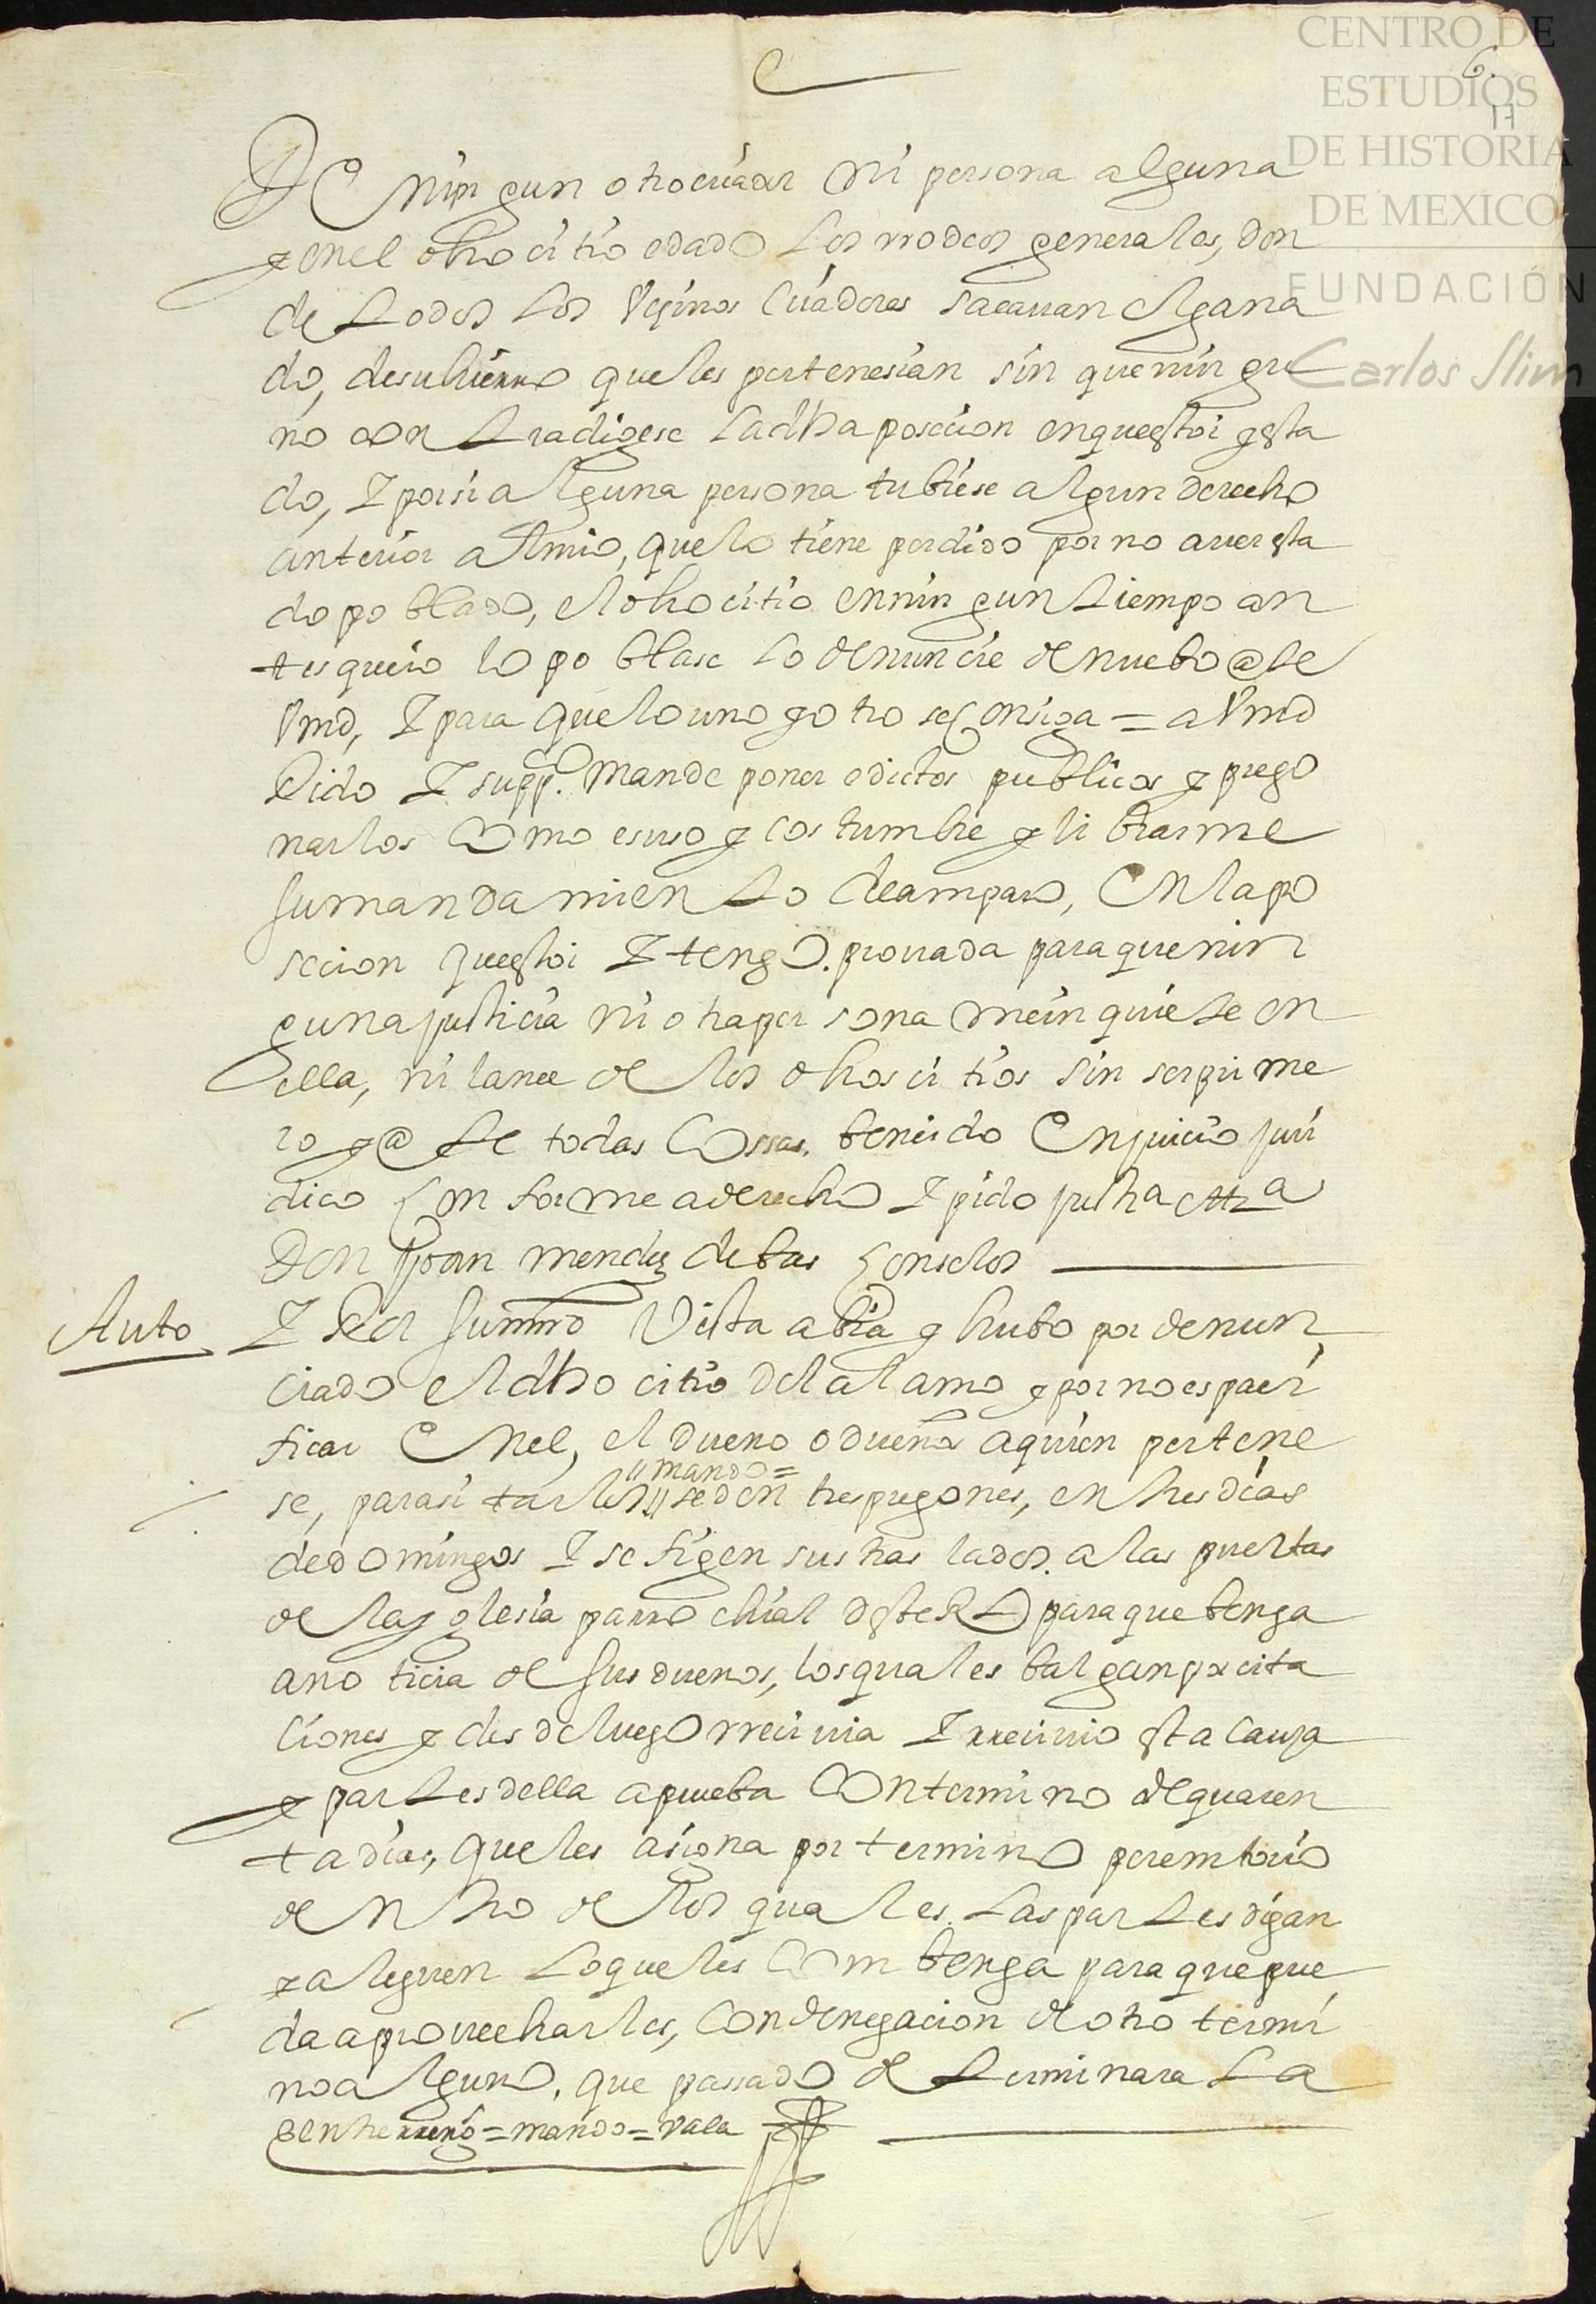 CENTRO DE
ESTUDIOS
DE HISTORIA
DE MEXICO
FUNDACIÓN
Carlos Slim
6.
17
De ningun otro criador ni persona alguna
y en el dho citio e dado los rrodeos generales, don
de todos los Veçinos Criadores sacauan el gana
do, de su hierro que les pertenesian sin que nin gu
no con tradigese la dha posecion en que estoi y esta
do, Y por si alguna persona tubiese algun derecho
anterior al mio, que lo tiene perdido por no auer esta
do poblado, el dho citio en nin gun tiempo an
tes que io lo poblase lo denuncie de nuebo ante
Vmd, Y para que lo uno y otro se Consiga = a Vmd
Pido Y suppco. mande poner edictos publicos y prego
narlos Como es uso y costumbre y librarme
su mandamien to de amparo, En la po
secion que estoi Y tengo. prouada para que nin
guna justicia ni otra persona me inquiete en
ella, ni lance de los dhos citios sin ser prime
ro y ante todas Cossas. bencido En juicio juri
dico Conforme a derecho Y pido justia etta
Don Joan mendez de bas Conselos
Auto Y Por su mrd Vista abia y hubo por denun
ciado el dho citio del alamo y por no espaci
ficar En el, el dueno o duenos a quien pertene
se, para sitarlos // se den tres pregones, en tres dias
// mando =
de domingos Y se figen sus tras lados. a las puertas
de la yglesia parrochial deste Rl para que benga
a no ticia de sus duenos, los quales balgan por cita
ciones y des de luego rreciuia Y rreciuio esta causa
y partes della a prueba Con termino de quaren
ta dias, que les asigna por termino peremtorio
den tro de los quales. las partes digan
y aleguen lo que les Com benga para que pue
da aprouecharles, Con denegacion de otro termi
no alguno, que passado de terminara la
Entre rreng = mando = Vala